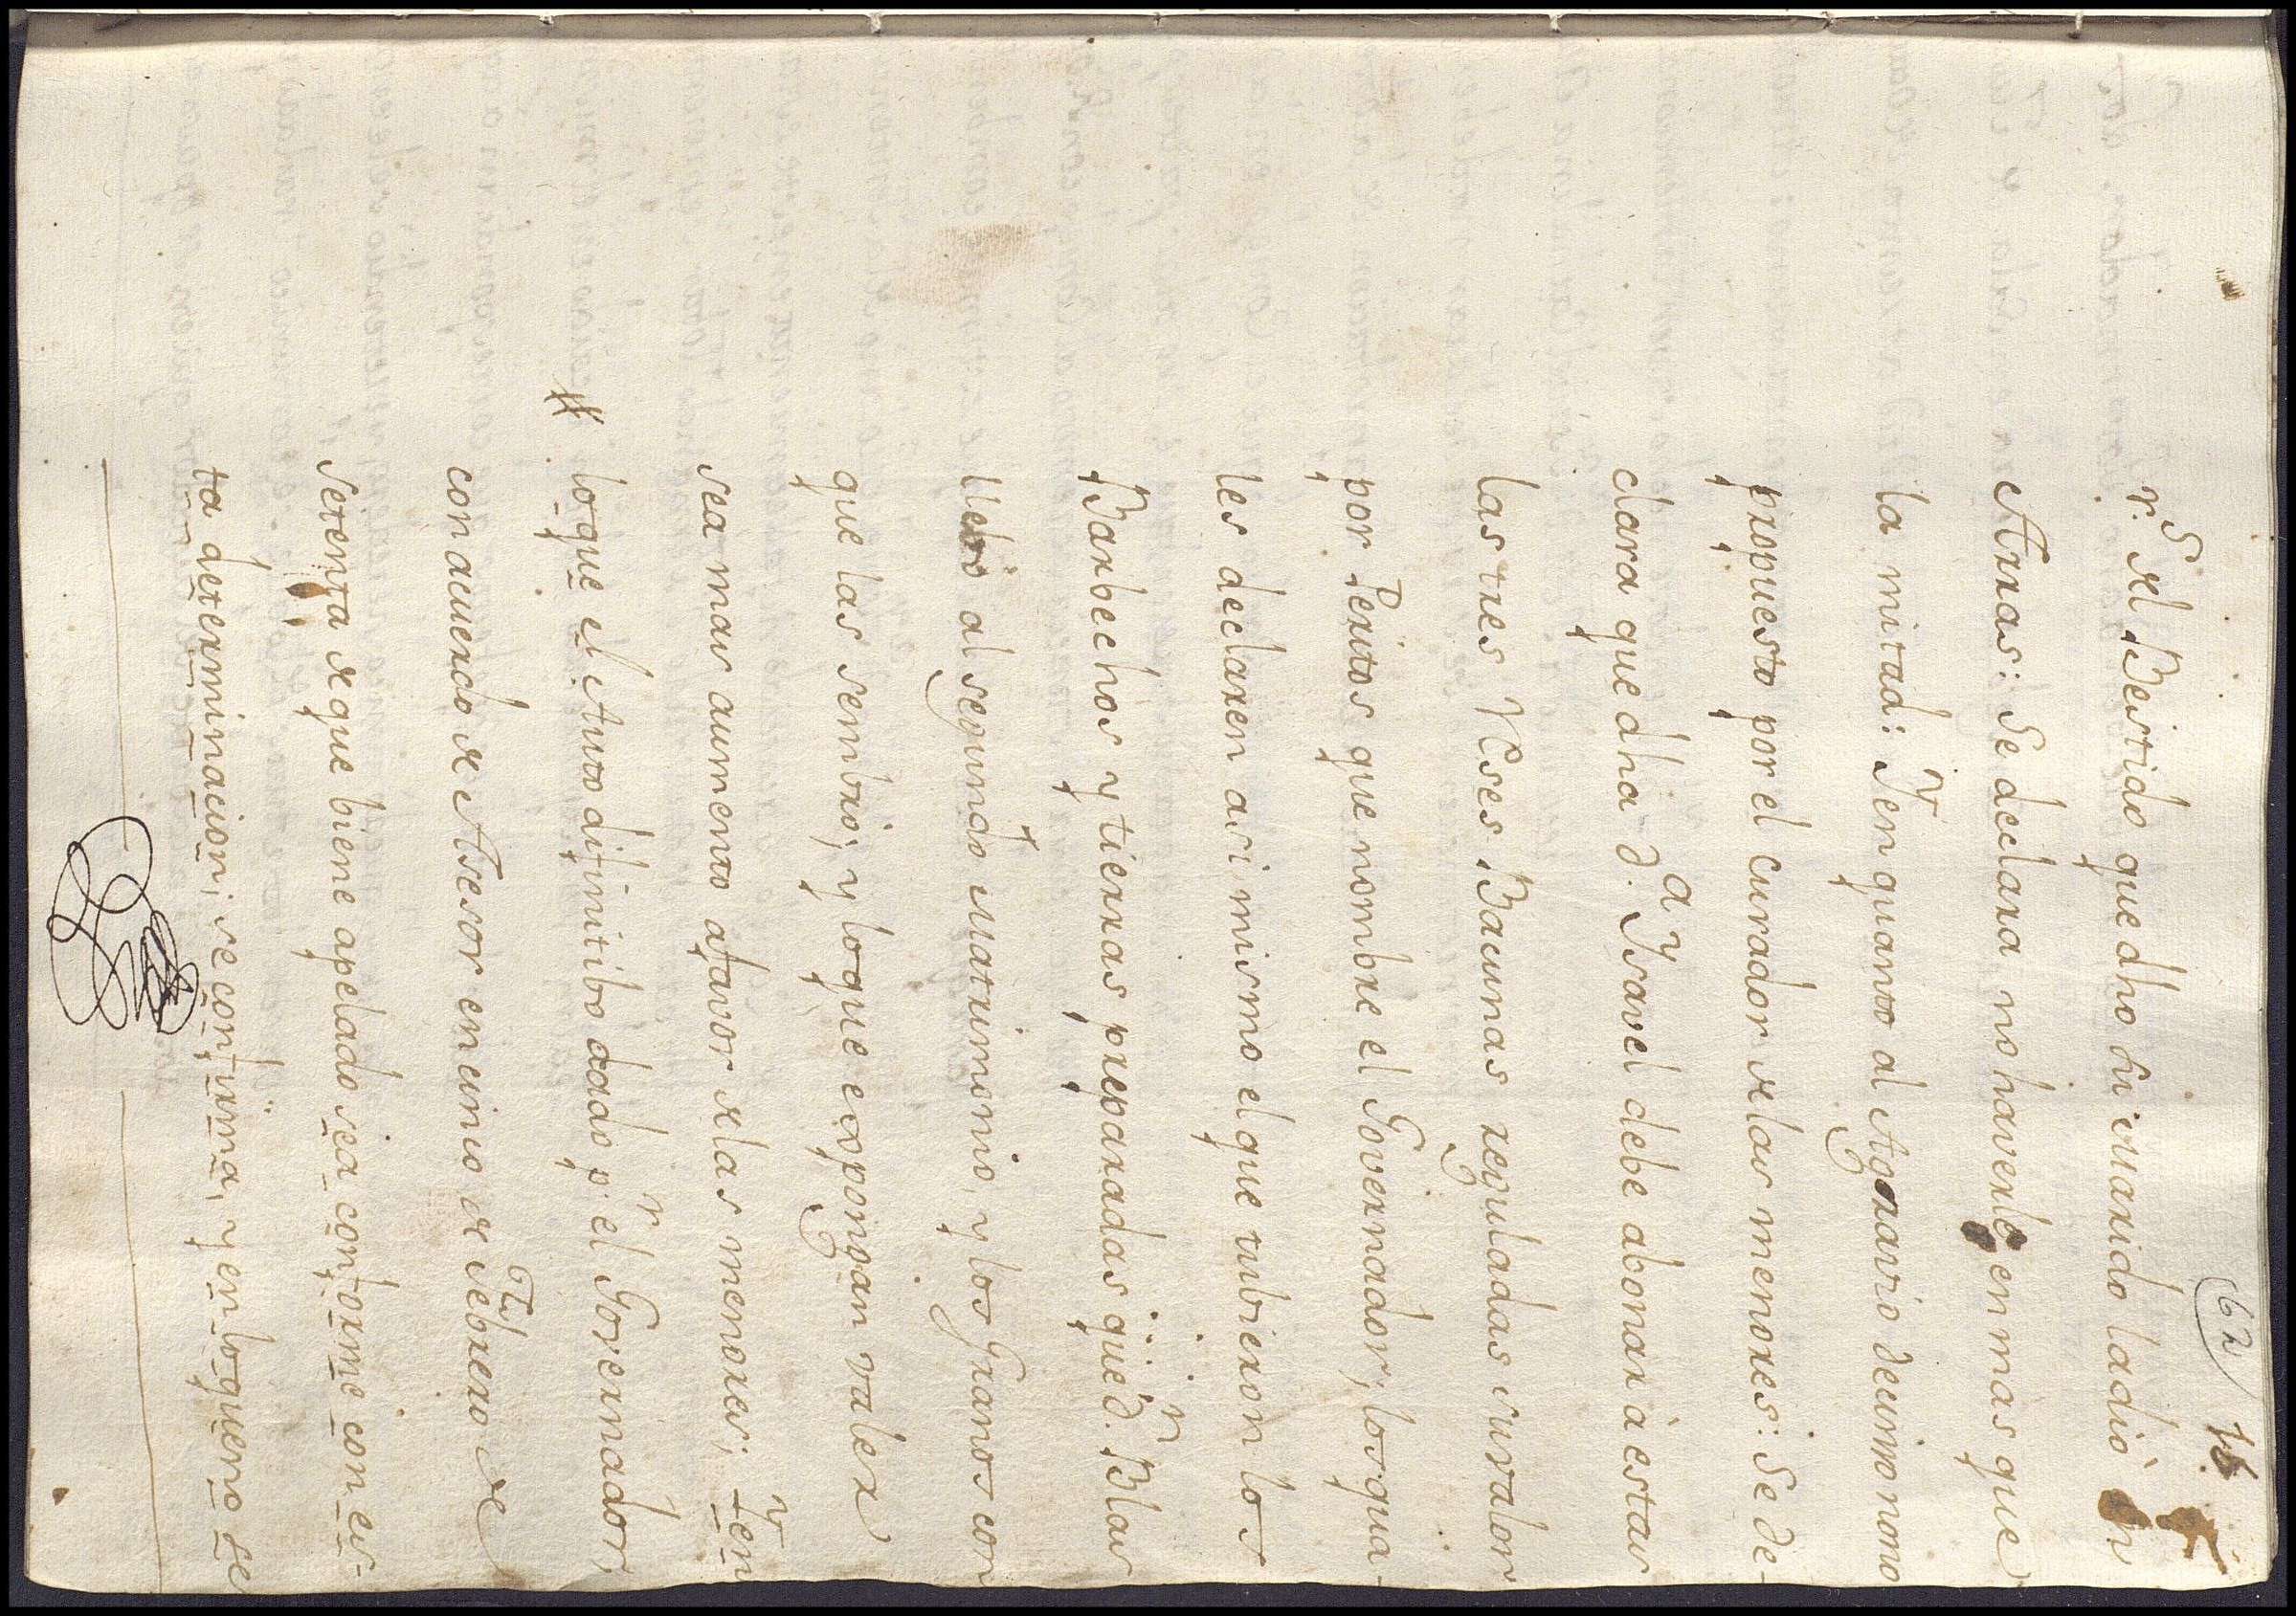 62
r.S del Bestido que dho su marido la dio en
Arras: Se declara no haverle en mas que
la mitad: Yten quanto al Agravio decimo nono
propuesto por el curador de las menores: Se de-
clara que dha D.a Ysavel debe abonar à estas
las tres Reses Bacunas reguladas su valor
por Peritos que nombre el Governador, los qua-
les declaren asi mismo el que tubieron los
Barbechos y tierras preparadas que D.n Blas
llebò al segundo Matrimonio, y los Granos con
que las sembrò, y lo que expongan valer
sea mas aumento a favor de las menores; Yten
lo que el Auto difinitibo dado p.r el Governador,
con acuerdo de Asesor en cinco de Febrero de
setenta de que biene apelado sea conforme con es-
ta determinacion, se confirma, y en lo que no se